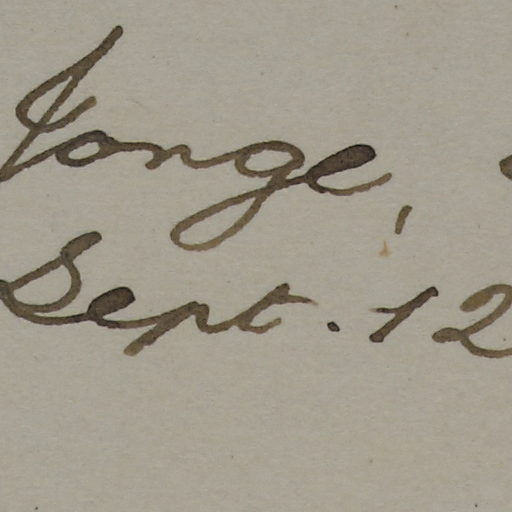 Yonge,
Sept. 12